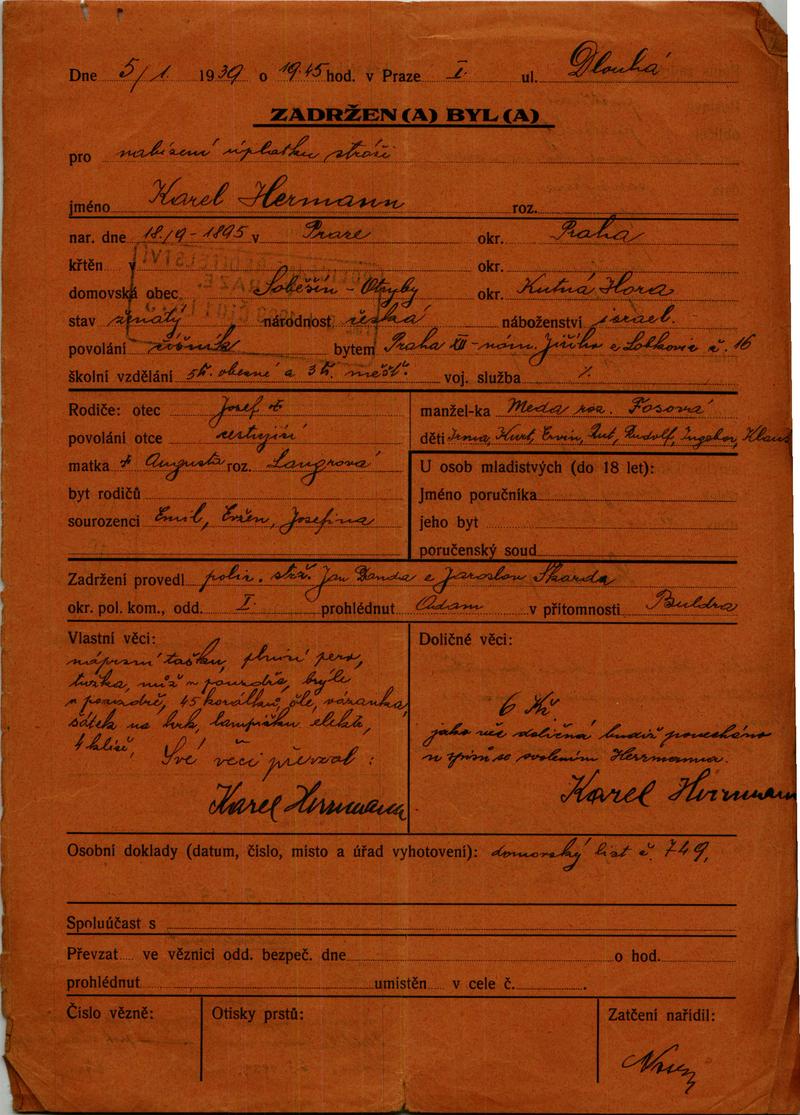 Dne 5/1. 1939 o 19.45 hod. v Praze I. ul. Dlouhá
ZADRŽEN(A) BYL(A)
pro nabízení úplatku stráži
jméno Karel Hermann roz.
nar. dne 18./9-1895 v Praze okr. Praha
křtěn v okr.
domovská obec Soběšín - Otryby okr. Kutná Hora
stav ženatý národnost česká náboženství israel.
povolání číšník bytem Praha XII - nám. Jiřího z Lobkovic č. 16
školní vzdělání 5 tř. obecné a 3 tř. měšť. voj. služba /.
Rodiče: otec Josef
povolání otce cestující
matka Augusta roz. Langrová
byt rodičů
sourozenci Emil, Evžen, Josefina
manžel-ka Meda roz. Fosová
děti Irma, Kurt, Ervin, Rut, Rudolf, Ingebor, Klaus
U osob mladistvých (do 18 let):
Jméno poručníka
jeho byt
poručenský soud
Zadržení provedl poliv. strž. Jan Danda a Jaroslav Škarda
okr. pol. kom., odd. I. prohlédnut Adam v přítomnosti Buldra
Vlastní věci:
náprsní tašku, plnicí pero,
tužka, nůž v pouzdře, brýle
v pouzdře, 45 korálků, šle, vázanka,
šátek na krk, lampičku elektr.,
4 klíče,
Své věci převzal:
Karel Hermann
Doličné věci:
6 Kč
jako věc doličná budiž ponecháno
u spisů se svolením Herrmanna.
Karel Hermann
Osobní doklady (datum, číslo, místo a úřad vyhotovení): domovský list č. 749,
Spoluúčast s
Převzat ve věznici odd. bezpeč. dne o hod.
prohlédnut umístěn v cele č.
Číslo vězně: Otisky prstů: Zatčení nařídil: